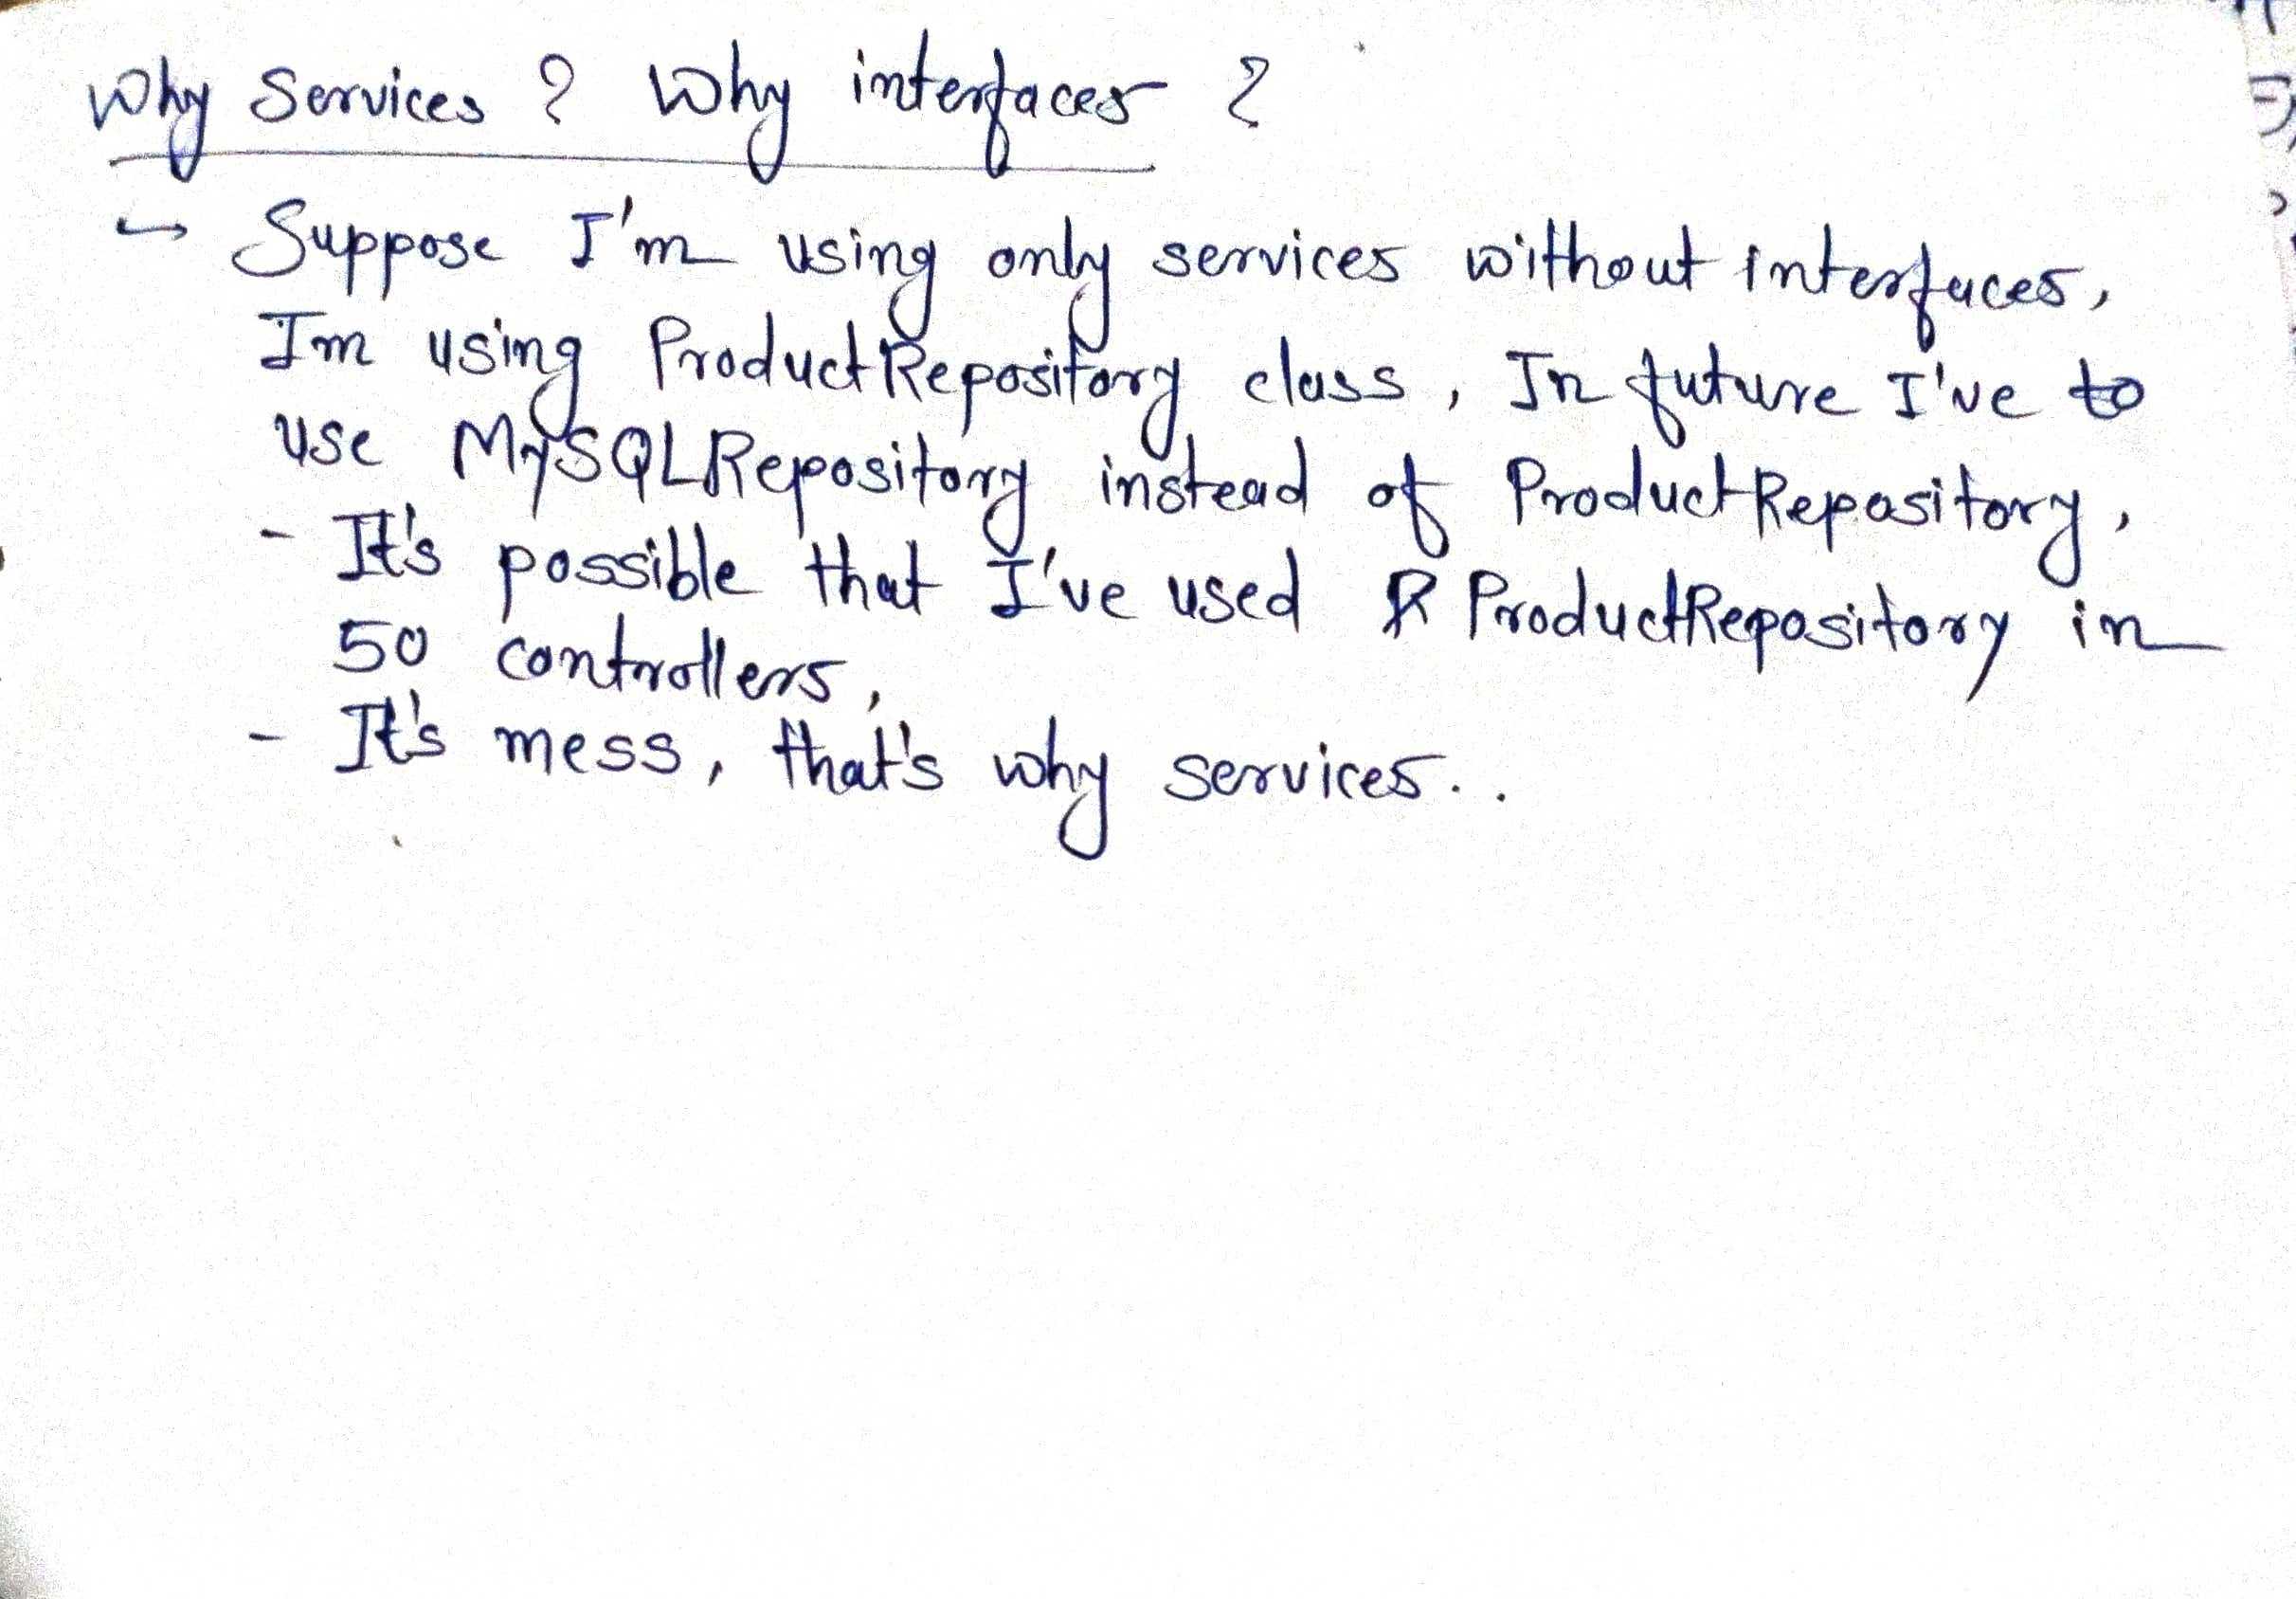 Why Services ? Why interfaces ?
↪ Suppose I'm using only services without interfaces,
Im using ProductRepository class, In future I've to
use MySQLRepository instead of ProductRepository,
- It's possible that I've used ProductRepository in
50 controllers,
- It's mess, that's why services..